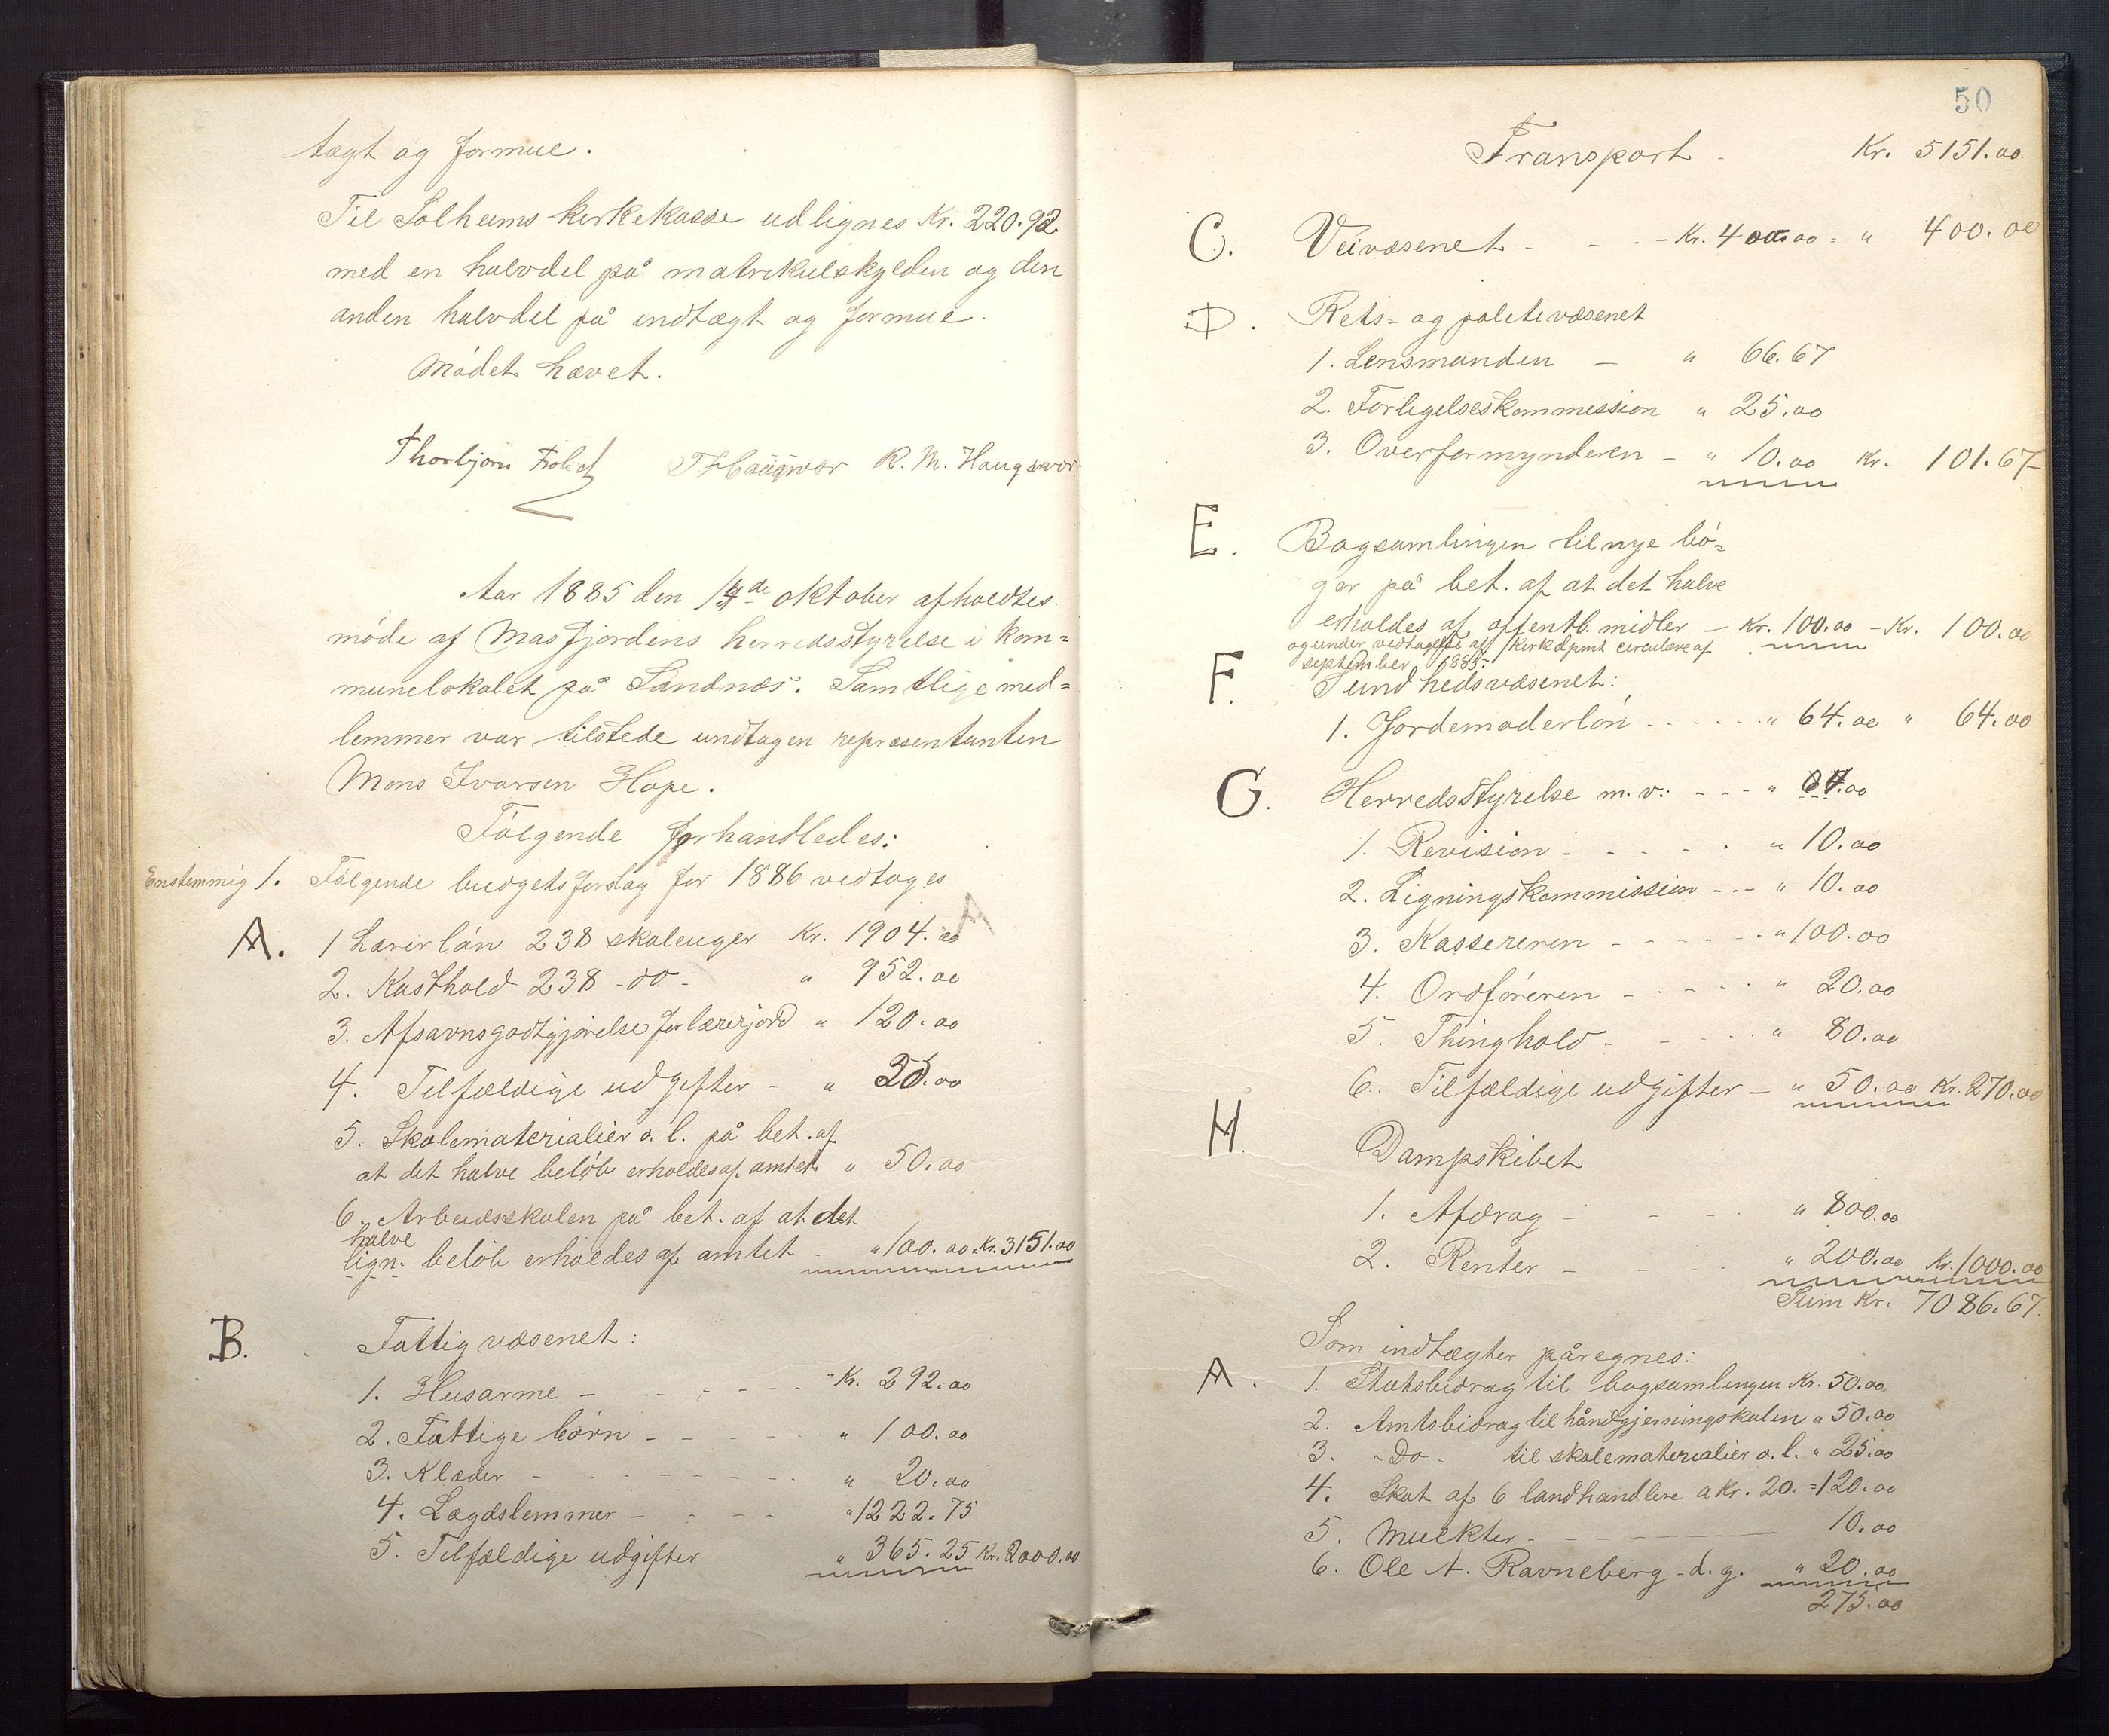 tægt og formue.
Til Solheims kirkekasse udlignes Kr. 220.92
med en halvdel på matrikulskylden og den
anden halvdel på indtægt og formue.
Mødet hævet.
Thorbjørn R. M. Haugsvær
Aar 1885 den 14de oktober afholdtes
møde af Masfjordens herredsstyrelse i kom=
munelokalet på Sandnæs. Samtlige med=
lemmer var tilstede undtagen repræsentanten
Mons Ivarsen Hope.
Følgende forhandledes:
Enstemmig 1. Følgende budgetsforslag for 1886 vedtoges
A. 1 Lærerløn 238 skoleuger Kr. 1904.00
2. Kosthold 238 -do- " 952.00
3. Afsavnsgodtgjørelse for lærerjord " 120.00
4. Tilfældige udgifter - " 25.00
5. Skolematerialier o. l. på bet. af
at det halve beløb erholdes af amtet " 50.00
6. Arbeidsskolen på bet. af at det
halve
lign. beløb erholdes af amtet - " 100.00 Kr. 3151.00
B. Fattigvæsenet:
1. Husarme - - - - Kr. 292.00
2. Fattige børn - - - - " 100.00
3. Klæder - - - - - " 20.00
4. Lægdslemmer - - - - " 1222.75
5. Tilfældige udgifter " 365.25 Kr. 2000.00
50
Transport - Kr. 5151.00
C. Veivæsenet - - - Kr. 400.00 = " 400.00
D. Rets- og politivæsenet
1. Lensmanden - " 66.67
2. Forligelseskommission " 25.00
3. Overformynderen - " 10.00 Kr. 101.67
E. Bogsamlingen til nye bø=
ger på bet. af at det halve
erholdes af offentl. midler - Kr. 100.00 - Kr. 100.00
og under vedtagelse af Kirkedpmt circulære af
september 1885.
F. Sundhedsvæsenet:
1. Jordemoderløn - - - - - " 64.00 " 64.00
G. Herredsstyrelse m. v: - - - "
1. Revision - - - - - " 10.00
2. Ligningskommission - - - " 10.00
3. Kassereren - - - - - " 100.00
4. Ordføreren - - - - " 20.00
5. Thinghold - - - - " 80.00
6. Tilfældige udgifter - " 50.00 Kr. 270.00
H. Dampskibet
1. Afdrag - - - " 800.00
2. Renter - - " 200.00 Kr. 1000.00
Sum Kr. 7086.67
Som indtægter påregnes:
A. 1. Statsbidrag til bogsamlingen Kr. 50.00
2. Amtsbidrag til håndgjerningskolen " 50.00
3. -Do- til skolematerialier o. l. " 25.00
4. Skat af 6 landhandlere a Kr. 20. = 120.00
5. Mulkter - - - 10.00
6. Ole A. Ravneberg - d. g. " 20.00
275.00